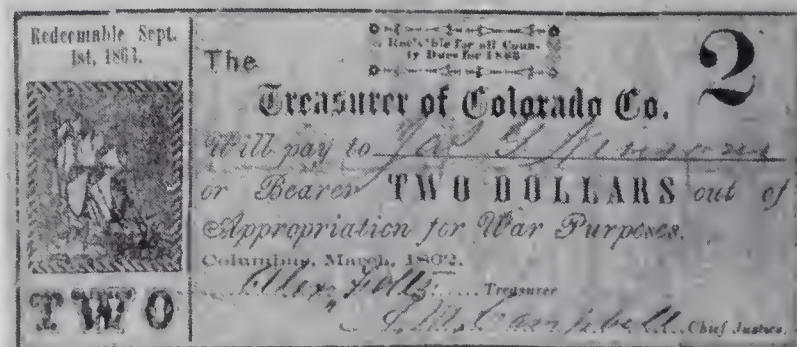 Redeemable Sept.
1st, 1864.
Rec'vble for all Coun-
ty Dues for 1862
2
The
Treasurer of Colorado Co.
Will pay to Jas
or Bearer TWO DOLLARS out of
Appropriation for War Purposes.
Columbus, March, 1862.
Treasurer
J. M. Campbell Chief Justice.
TWO